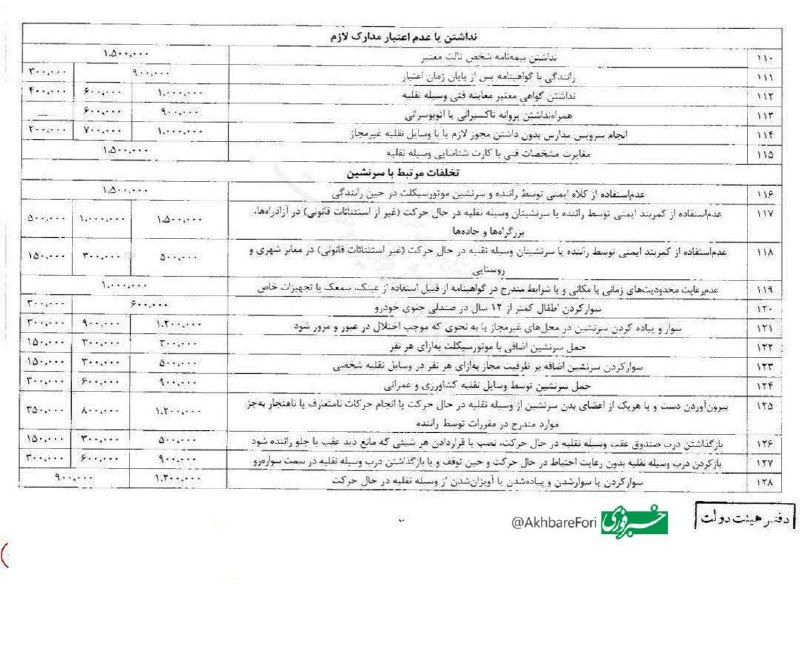 نداشتن یا عدم اعتبار مدارک لازم
۱۱۰ نداشتن بیمه‌نامه شخص ثالث معتبر ۱.۵۰۰.۰۰۰
۱۱۱ رانندگی با گواهینامه پس از پایان زمان اعتبار ۹۰۰.۰۰۰ ۳۰۰.۰۰۰
۱۱۲ نداشتن گواهی معتبر معاینه فنی وسیله نقلیه ۱.۰۰۰.۰۰۰ ۶۰۰.۰۰۰ ۴۰۰.۰۰۰
۱۱۳ همراه‌نداشتن پروانه تاکسیرانی یا اتوبوسرانی ۹۰۰.۰۰۰ ۶۰۰.۰۰۰ —
۱۱۴ انجام سرویس مدارس بدون داشتن مجوز لازم یا با وسایل نقلیه غیرمجاز ۱.۰۰۰.۰۰۰ ۷۰۰.۰۰۰ ۲۰۰.۰۰۰
۱۱۵ مغایرت مشخصات فنی با کارت شناسایی وسیله نقلیه ۱.۵۰۰.۰۰۰
تخلفات مرتبط با سرنشین
۱۱۶ عدم‌استفاده از کلاه ایمنی توسط راننده و سرنشین موتورسیکلت در حین رانندگی ۱.۵۰۰.۰۰۰
۱۱۷ عدم‌استفاده از کمربند ایمنی توسط راننده یا سرنشینان وسیله نقلیه در حال حرکت (غیر از استثنائات قانونی) در آزادراه‌ها، ۱.۵۰۰.۰۰۰ ۱.۰۰۰.۰۰۰ ۵۰۰.۰۰۰
بزرگراه‌ها و جاده‌ها
۱۱۸ عدم‌استفاده از کمربند ایمنی توسط راننده یا سرنشینان وسیله نقلیه در حال حرکت (غیر استثنائات قانونی) در معابر شهری و ۵۰۰.۰۰۰ ۳۰۰.۰۰۰ ۱۵۰.۰۰۰
روستایی
۱۱۹ عدم‌رعایت محدودیت‌های زمانی یا مکانی و یا شرایط مندرج در گواهینامه از قبیل استفاده از عینک، سمعک یا تجهیزات خاص ۱.۰۰۰.۰۰۰
۱۲۰ سوارکردن اطفال کمتر از ۱۲ سال در صندلی جلوی خودرو ۶۰۰.۰۰۰ ۳۰۰.۰۰۰
۱۲۱ سوار و پیاده کردن سرنشین در محل‌های غیرمجاز یا به نحوی که موجب اختلال در عبور و مرور شود ۱.۲۰۰.۰۰۰ ۹۰۰.۰۰۰ ۳۰۰.۰۰۰
۱۲۲ حمل سرنشین اضافی با موتورسیکلت به‌ازای هر نفر ۳۰۰.۰۰۰ ۳۰۰.۰۰۰ ۱۵۰.۰۰۰
۱۲۳ سوارکردن سرنشین اضافه بر ظرفیت مجاز به‌ازای هر نفر در وسایل نقلیه شخصی ۵۰۰.۰۰۰ ۳۰۰.۰۰۰ ۱۵۰.۰۰۰
۱۲۴ حمل سرنشین توسط وسایل نقلیه کشاورزی و عمرانی ۹۰۰.۰۰۰ ۶۰۰.۰۰۰ ۳۰۰.۰۰۰
۱۲۵ بیرون‌آوردن دست و یا هریک از اعضای بدن سرنشین از وسیله نقلیه در حال حرکت یا انجام حرکات نامتعارف یا ناهنجار به‌جز ۱.۲۰۰.۰۰۰ ۸۰۰.۰۰۰ ۳۵۰.۰۰۰
موارد مندرج در مقررات توسط راننده
۱۲۶ بازگذاشتن درب صندوق عقب وسیله نقلیه در حال حرکت، نصب یا قراردادن هر شیئی که مانع دید عقب یا جلو راننده شود ۵۰۰.۰۰۰ ۳۰۰.۰۰۰ ۱۵۰.۰۰۰
۱۲۷ بازکردن درب وسیله نقلیه بدون رعایت احتیاط در حال حرکت و حین توقف و یا بازگذاشتن درب وسیله نقلیه در سمت سواره‌رو ۹۰۰.۰۰۰ ۶۰۰.۰۰۰ ۳۰۰.۰۰۰
۱۲۸ سوارکردن یا سوارشدن و پیاده‌شدن یا آویزان‌شدن از وسیله نقلیه در حال حرکت ۱.۲۰۰.۰۰۰ ۹۰۰.۰۰۰
دفتر هیئت دولت
خبرفوری @AkhbareFori